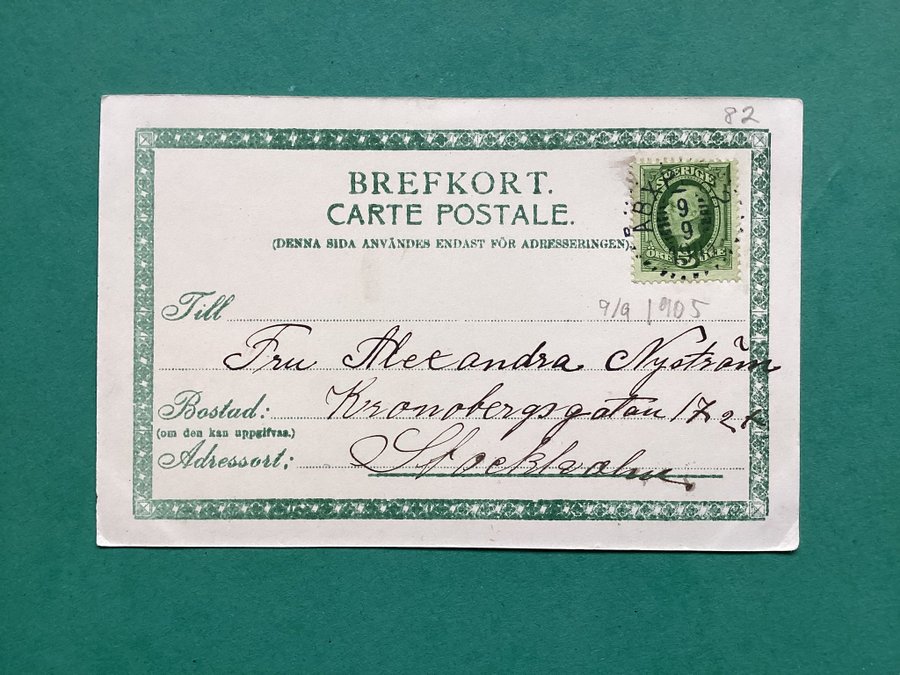 82
BREFKORT.
CARTE POSTALE.
(DENNA SIDA ANVÄNDES ENDAST FÖR ADRESSERINGEN).
SVERIGE
ÅBY
9
9
ÖRE 5 ÖRE
9/9 1905
Till
Fru Alexandra Nyström
Bostad: Kronobergsgatan 17 2 tr
(om den kan uppgifvas.)
Adressort: Stockholm.